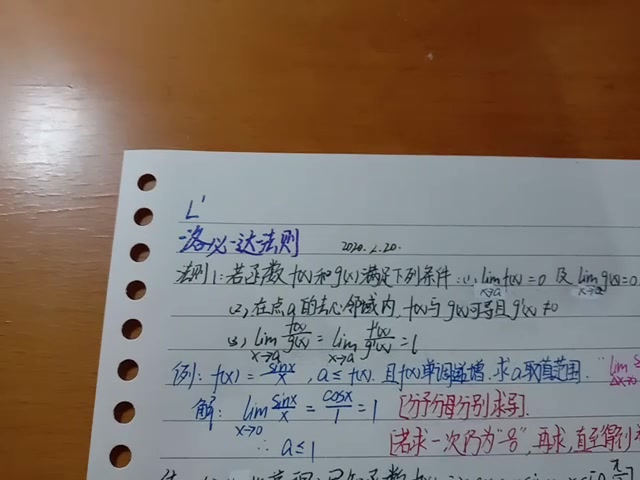 L'
洛必达法则 2020.2.20.
法则1:若函数f(x)和g(x)满足下列条件:(1) lim x→a f(x)=0 及 lim x→a g(x)=0
(2) 在点a的去心邻域内, f(x)与g(x)可导且g'(x)≠0
(3) lim x→a f(x)/g(x) = lim x→a f'(x)/g'(x) = l
例: f(x)= sinx/x , a≤f(x). 且f(x)单调递增, 求a取值范围. "lim Δx→0
解: lim x→0 sinx/x = cosx/1 = 1 [分子分母分别求导].
∴ a≤1 [若求一次仍为"0/0", 再求, 直至得到